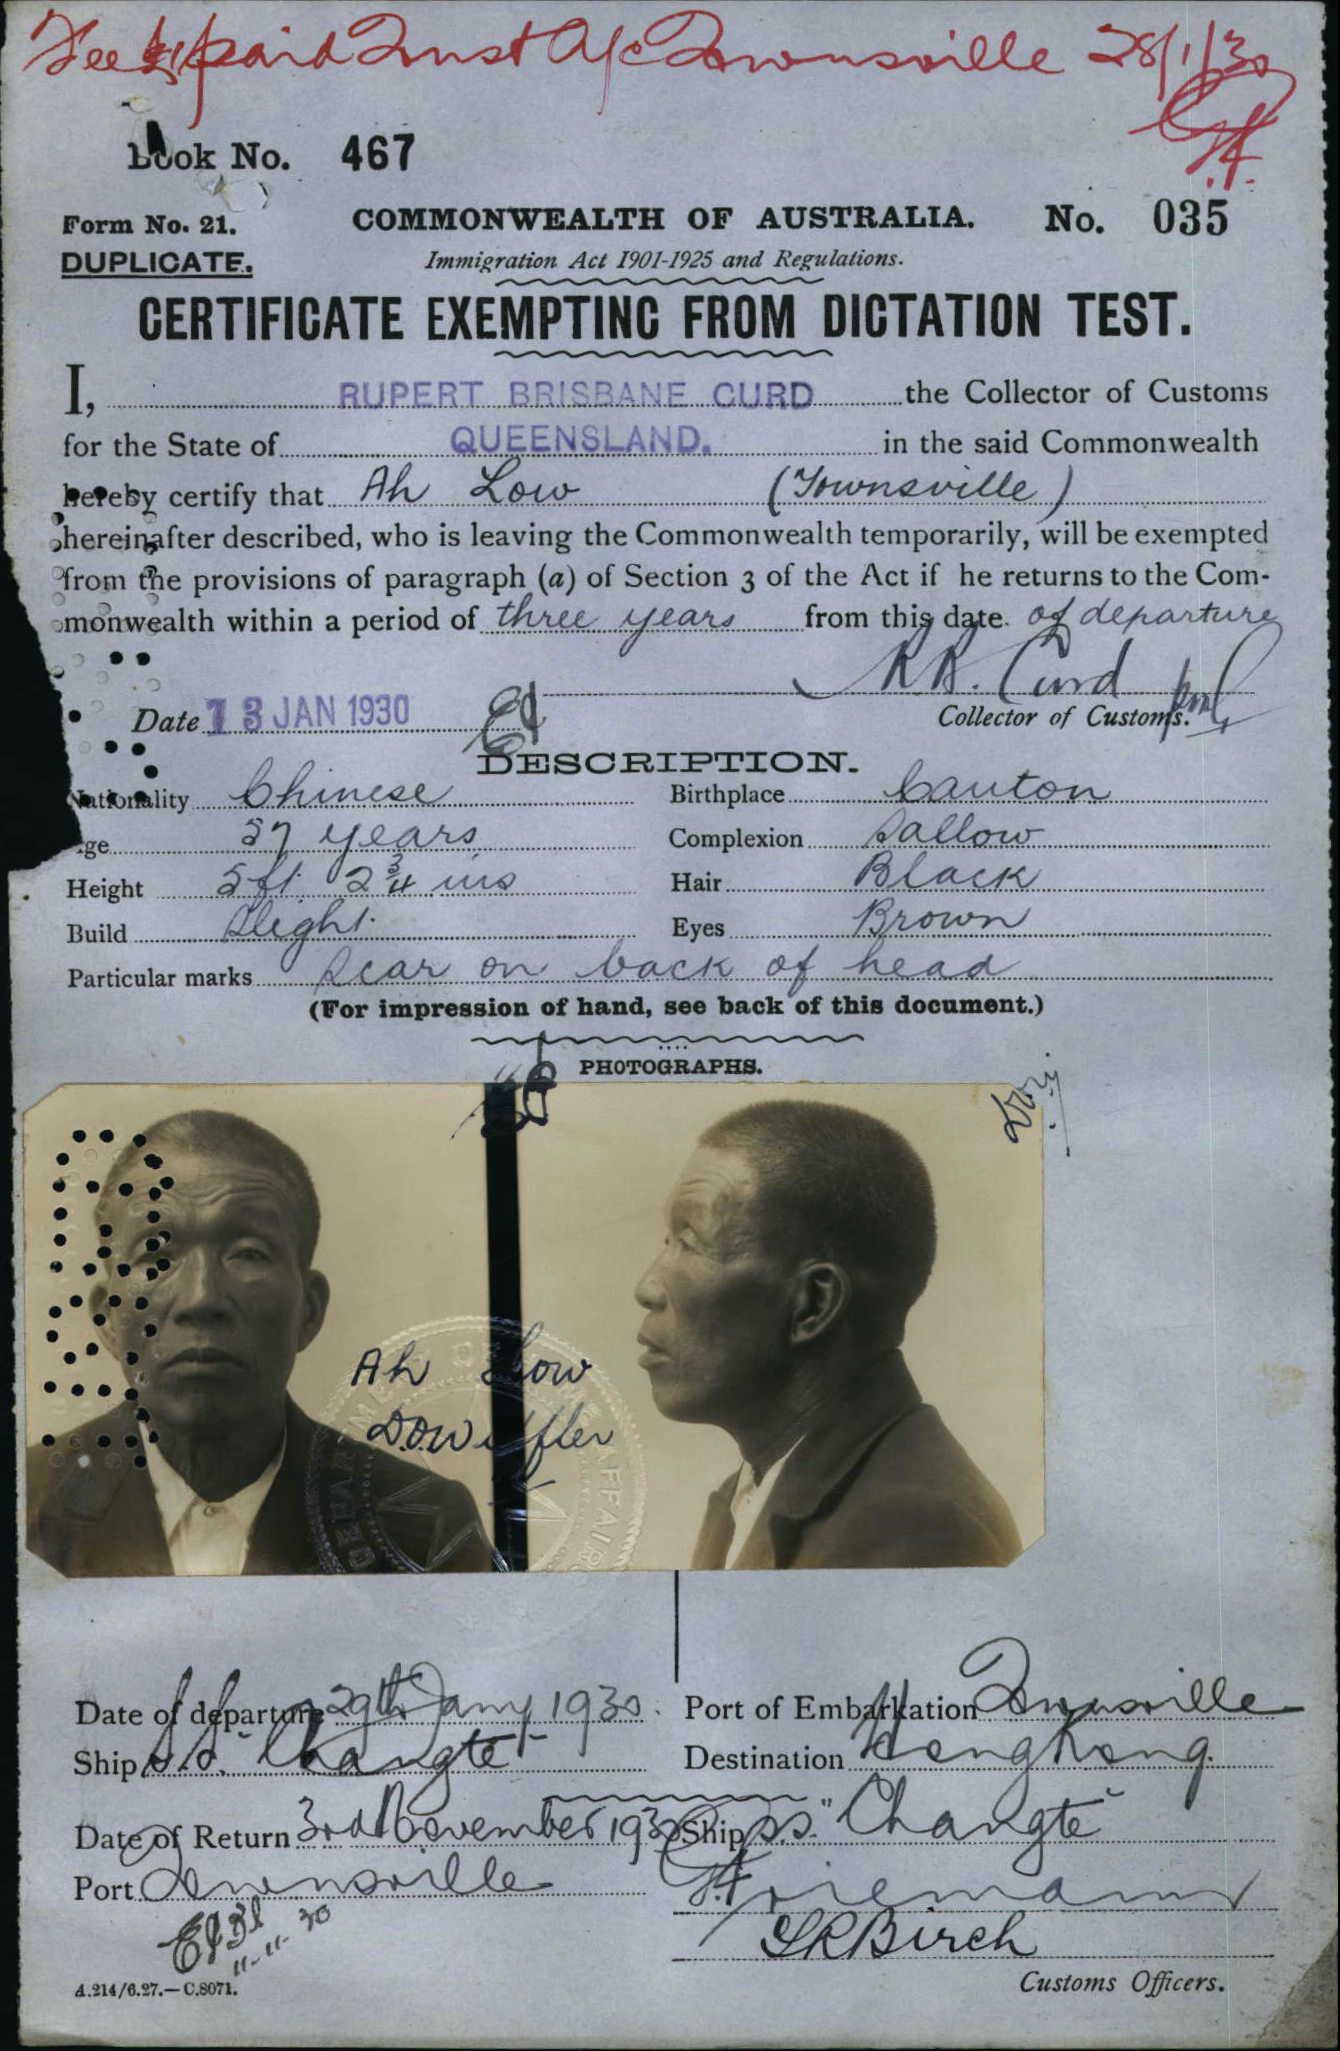 Fee £1 paid Trust A/c Townsville 28/1/30
Book No. 467
Form No. 21. COMMONWEALTH OF AUSTRALIA. No. 035
DUPLICATE. Immigration Act 1901-1925 and Regulations.
CERTIFICATE EXEMPTING FROM DICTATION TEST.
I, RUPERT BRISBANE CURD the Collector of Customs
for the State of QUEENSLAND. in the said Commonwealth
hereby certify that Ah Low (Townsville)
hereinafter described, who is leaving the Commonwealth temporarily, will be exempted
from the provisions of paragraph (a) of Section 3 of the Act if he returns to the Com-
monwealth within a period of three years from this date of departure
R.B. Curd
Date 13 JAN 1930 Collector of Customs.
DESCRIPTION.
Nationality Chinese Birthplace Canton
Age 57 years Complexion Sallow
Height 5ft 2 3/4 ins Hair Black
Build Slight Eyes Brown
Particular marks Scar on back of head
(For impression of hand, see back of this document.)
PHOTOGRAPHS.
Ah Low
DEPARTMENT OF AFFAIRS
Date of departure 29th Jany 1930. Port of Embarkation Townsville
Ship s.s. "Changte" Destination Hong Kong.
Date of Return 3rd November 1930 Ship s.s. "Changte"
Port Townsville
11-11-30
G.R. Birch
A.214/6.27.—C.8071. Customs Officers.